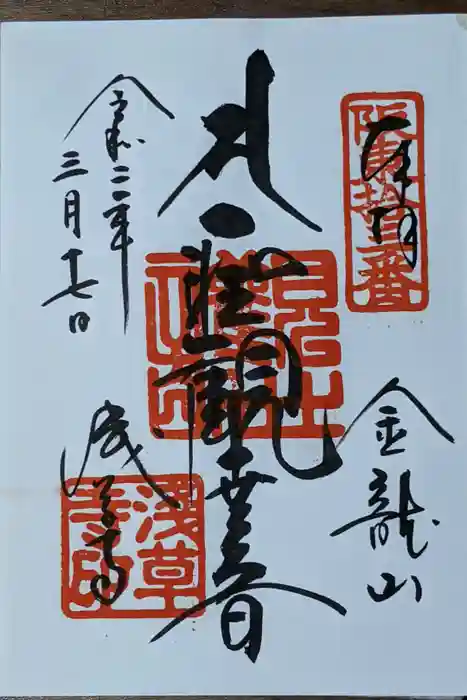 奉拝
阪東拾三番
金龍山
聖観世音
令和二年
三月十七日
浅草寺
浅草
寺印